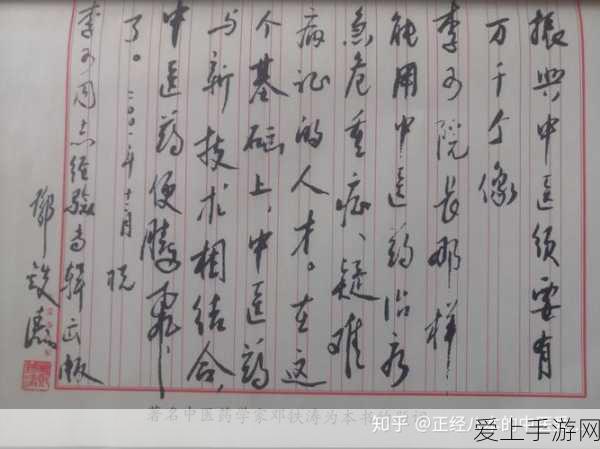 振兴中医须要有
万千个像
李可院长那样
能用中医药治疗
急危重症、疑难
病证的人才。在这
个基础上，中医药
与新技术相结合，
中医药便腾飞
了。 二〇〇一年十二月 祝
李可同志经验专辑出版
邓铁涛
著名中医药学家邓铁涛为本书的题词
知乎 @正经八百的中医
爱上手游网